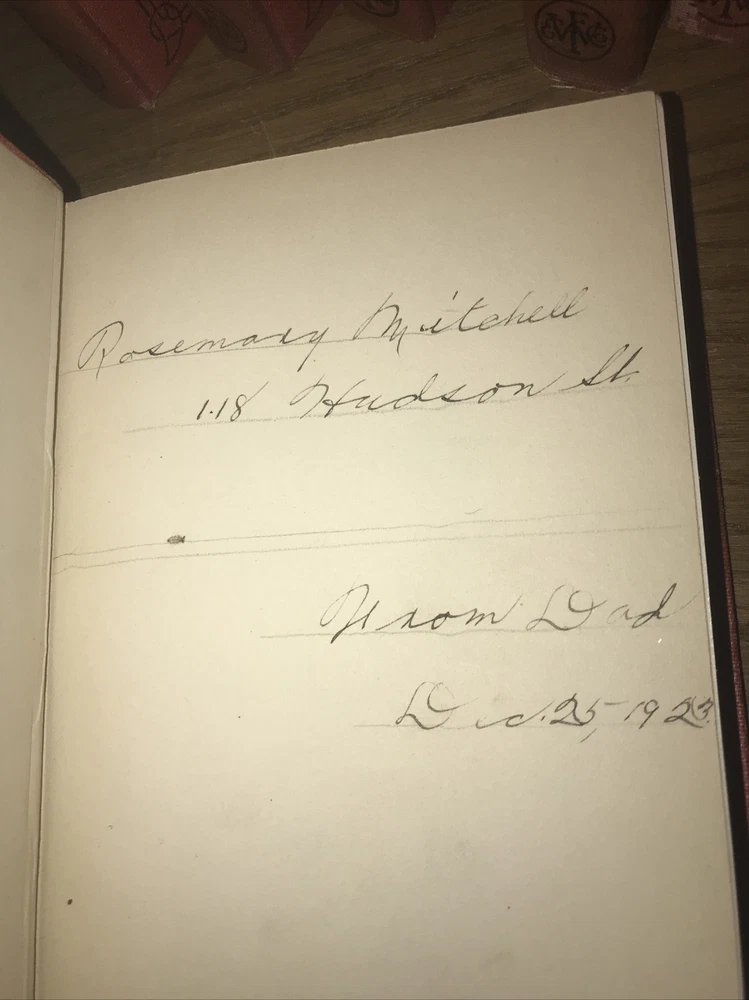 Rosemary Mitchell
118 Hudson St.
From Dad
Dec. 25, 1923